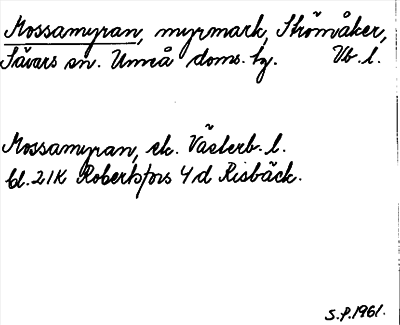 Mossamyran, myrmark, Strömåker,
Sävars sn. Umeå doms. tg. Vb. l.
Mossamyran, ek. Västerb. l.
bl. 21K Robertsfors 4d Risbäck.
S.P. 1961.